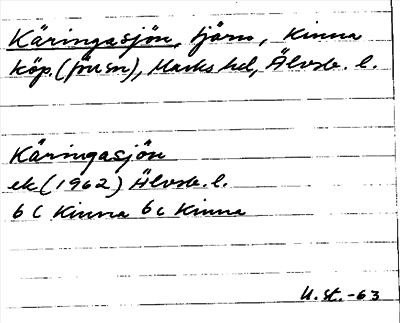 Käringasjön, tjärn, Kinna
köp. (försn), Marks hd, Älvsb. l.
Käringasjön
ek (1962) Älvsb. l.
6 C Kinna 6 c Kinna
U. St. -63